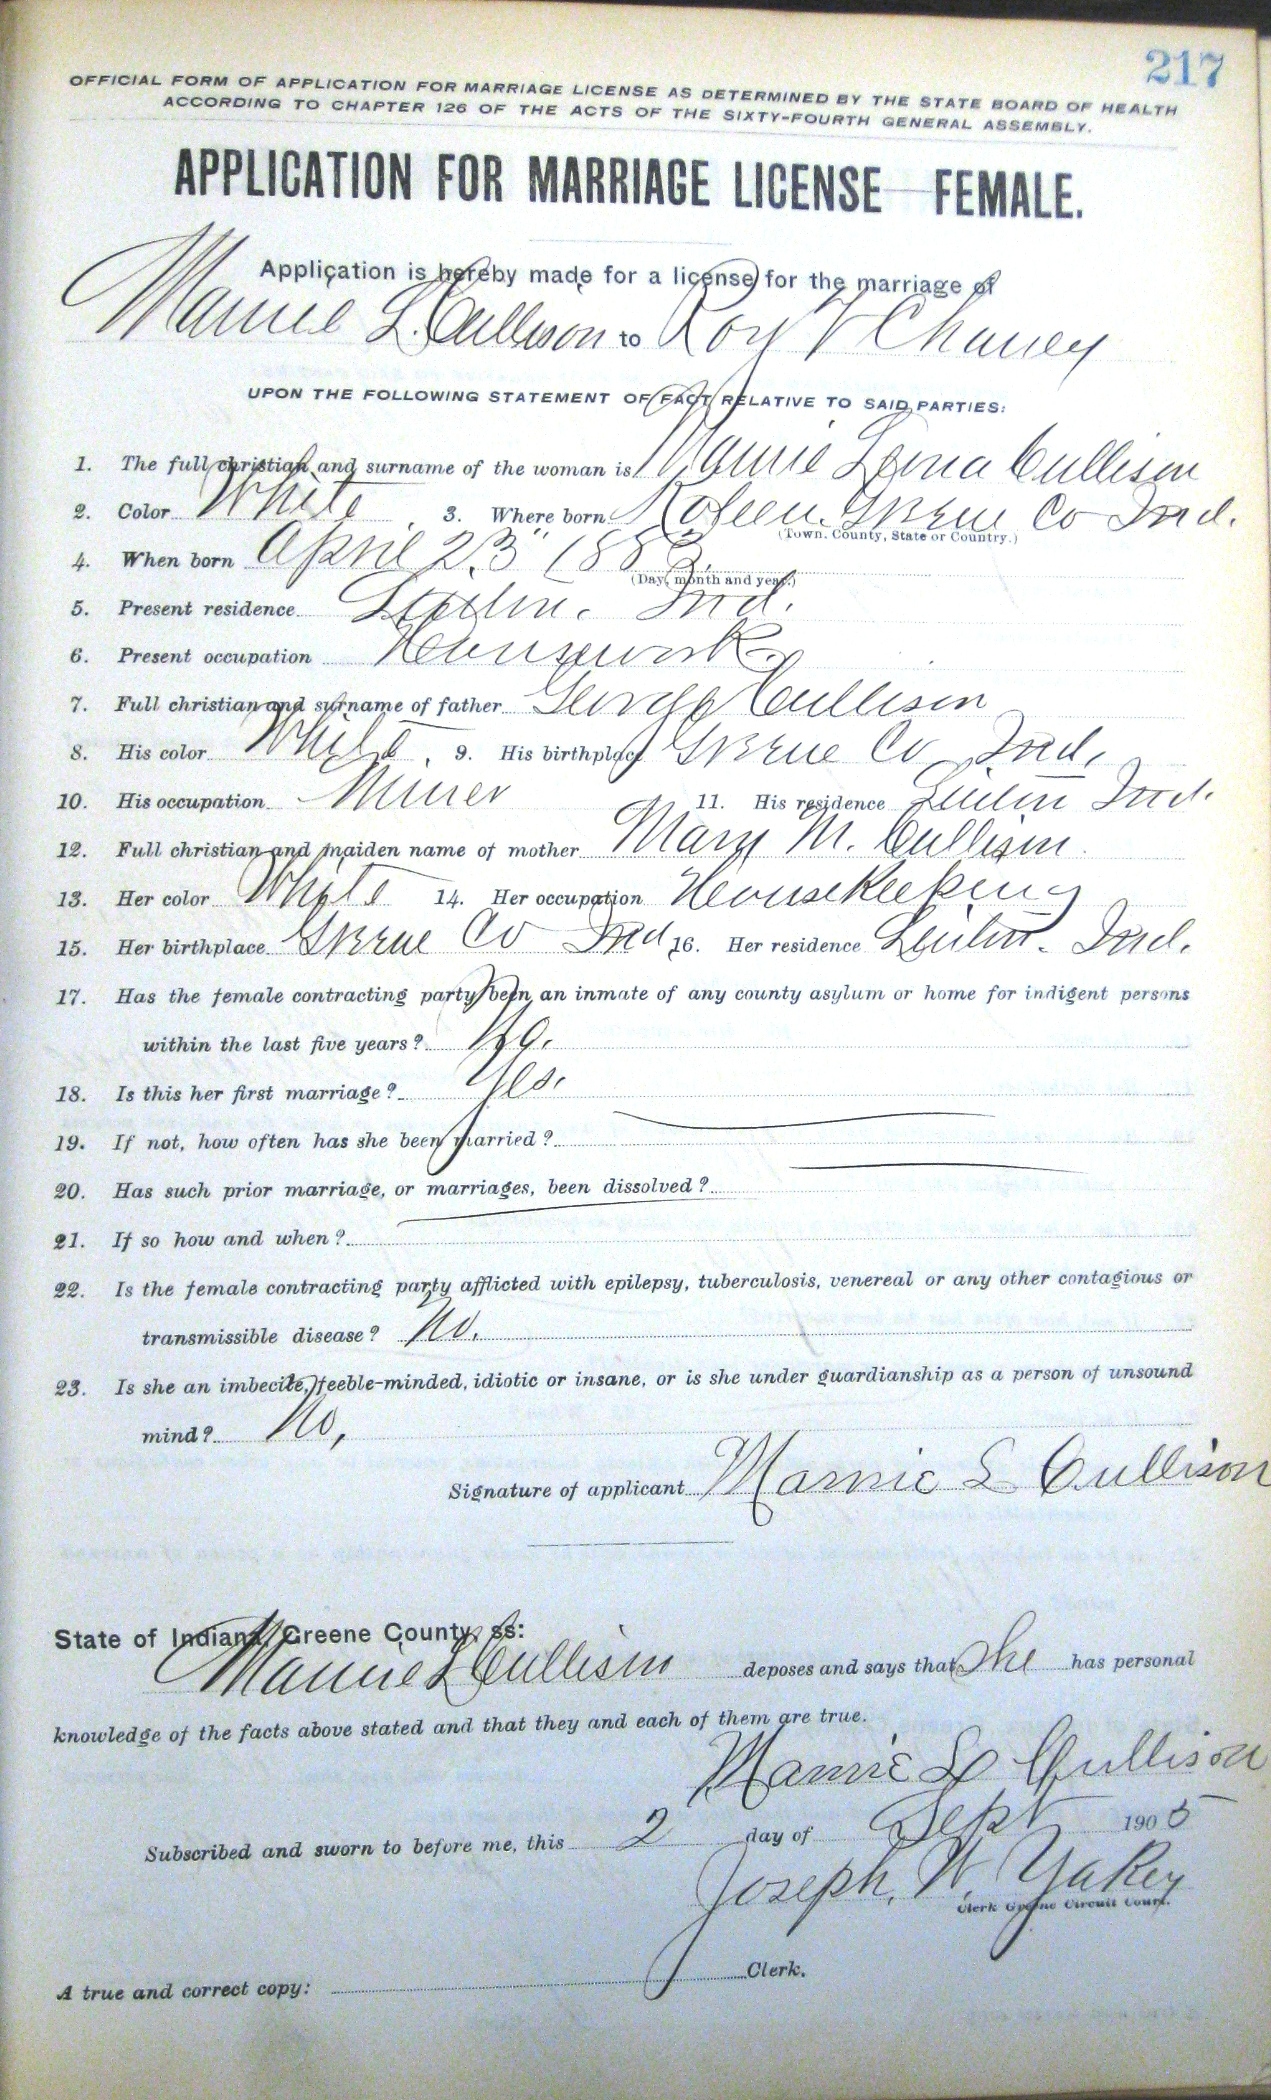 217
OFFICIAL FORM OF APPLICATION FOR MARRIAGE LICENSE AS DETERMINED BY THE STATE BOARD OF HEALTH
ACCORDING TO CHAPTER 126 OF THE ACTS OF THE SIXTY-FOURTH GENERAL ASSEMBLY.
APPLICATION FOR MARRIAGE LICENSE FEMALE.
Application is hereby made for a license for the marriage of
Mamie L. Cullison to Roy V Chaney
UPON THE FOLLOWING STATEMENT OF FACT RELATIVE TO SAID PARTIES:
1. The full christian and surname of the woman is Mamie Cullison
2. Color White 3. Where born Koleen. Greene Co Ind.
(Town. County, State or Country.)
4. When born April 23" 1883.
(Day, month and year.)
5. Present residence Linton. Ind.
6. Present occupation Housework.
7. Full christian and surname of father George Cullison
8. His color White. 9. His birthplace Greene Co Ind.
10. His occupation Miner 11. His residence Linton Ind.
12. Full christian and maiden name of mother Mary M. Cullison.
13. Her color White 14. Her occupation Housekeeping
15. Her birthplace Greene Co Ind 16. Her residence Linton. Ind.
17. Has the female contracting party been an inmate of any county asylum or home for indigent persons
within the last five years? No.
18. Is this her first marriage? Yes.
19. If not, how often has she been married?
20. Has such prior marriage, or marriages, been dissolved?
21. If so how and when?
22. Is the female contracting party afflicted with epilepsy, tuberculosis, venereal or any other contagious or
transmissible disease? No.
23. Is she an imbecile, feeble-minded, idiotic or insane, or is she under guardianship as a person of unsound
mind? No,
Signature of applicant Mamie L Cullison
State of Indiana, Greene County, ss:
Mamie L Cullison deposes and says that She has personal
knowledge of the facts above stated and that they and each of them are true.
Mamie L Cullison
Subscribed and sworn to before me, this 2 day of Sept 1905
Joseph. W. Yakey
Clerk Greene Circuit Court.
A true and correct copy: Clerk.